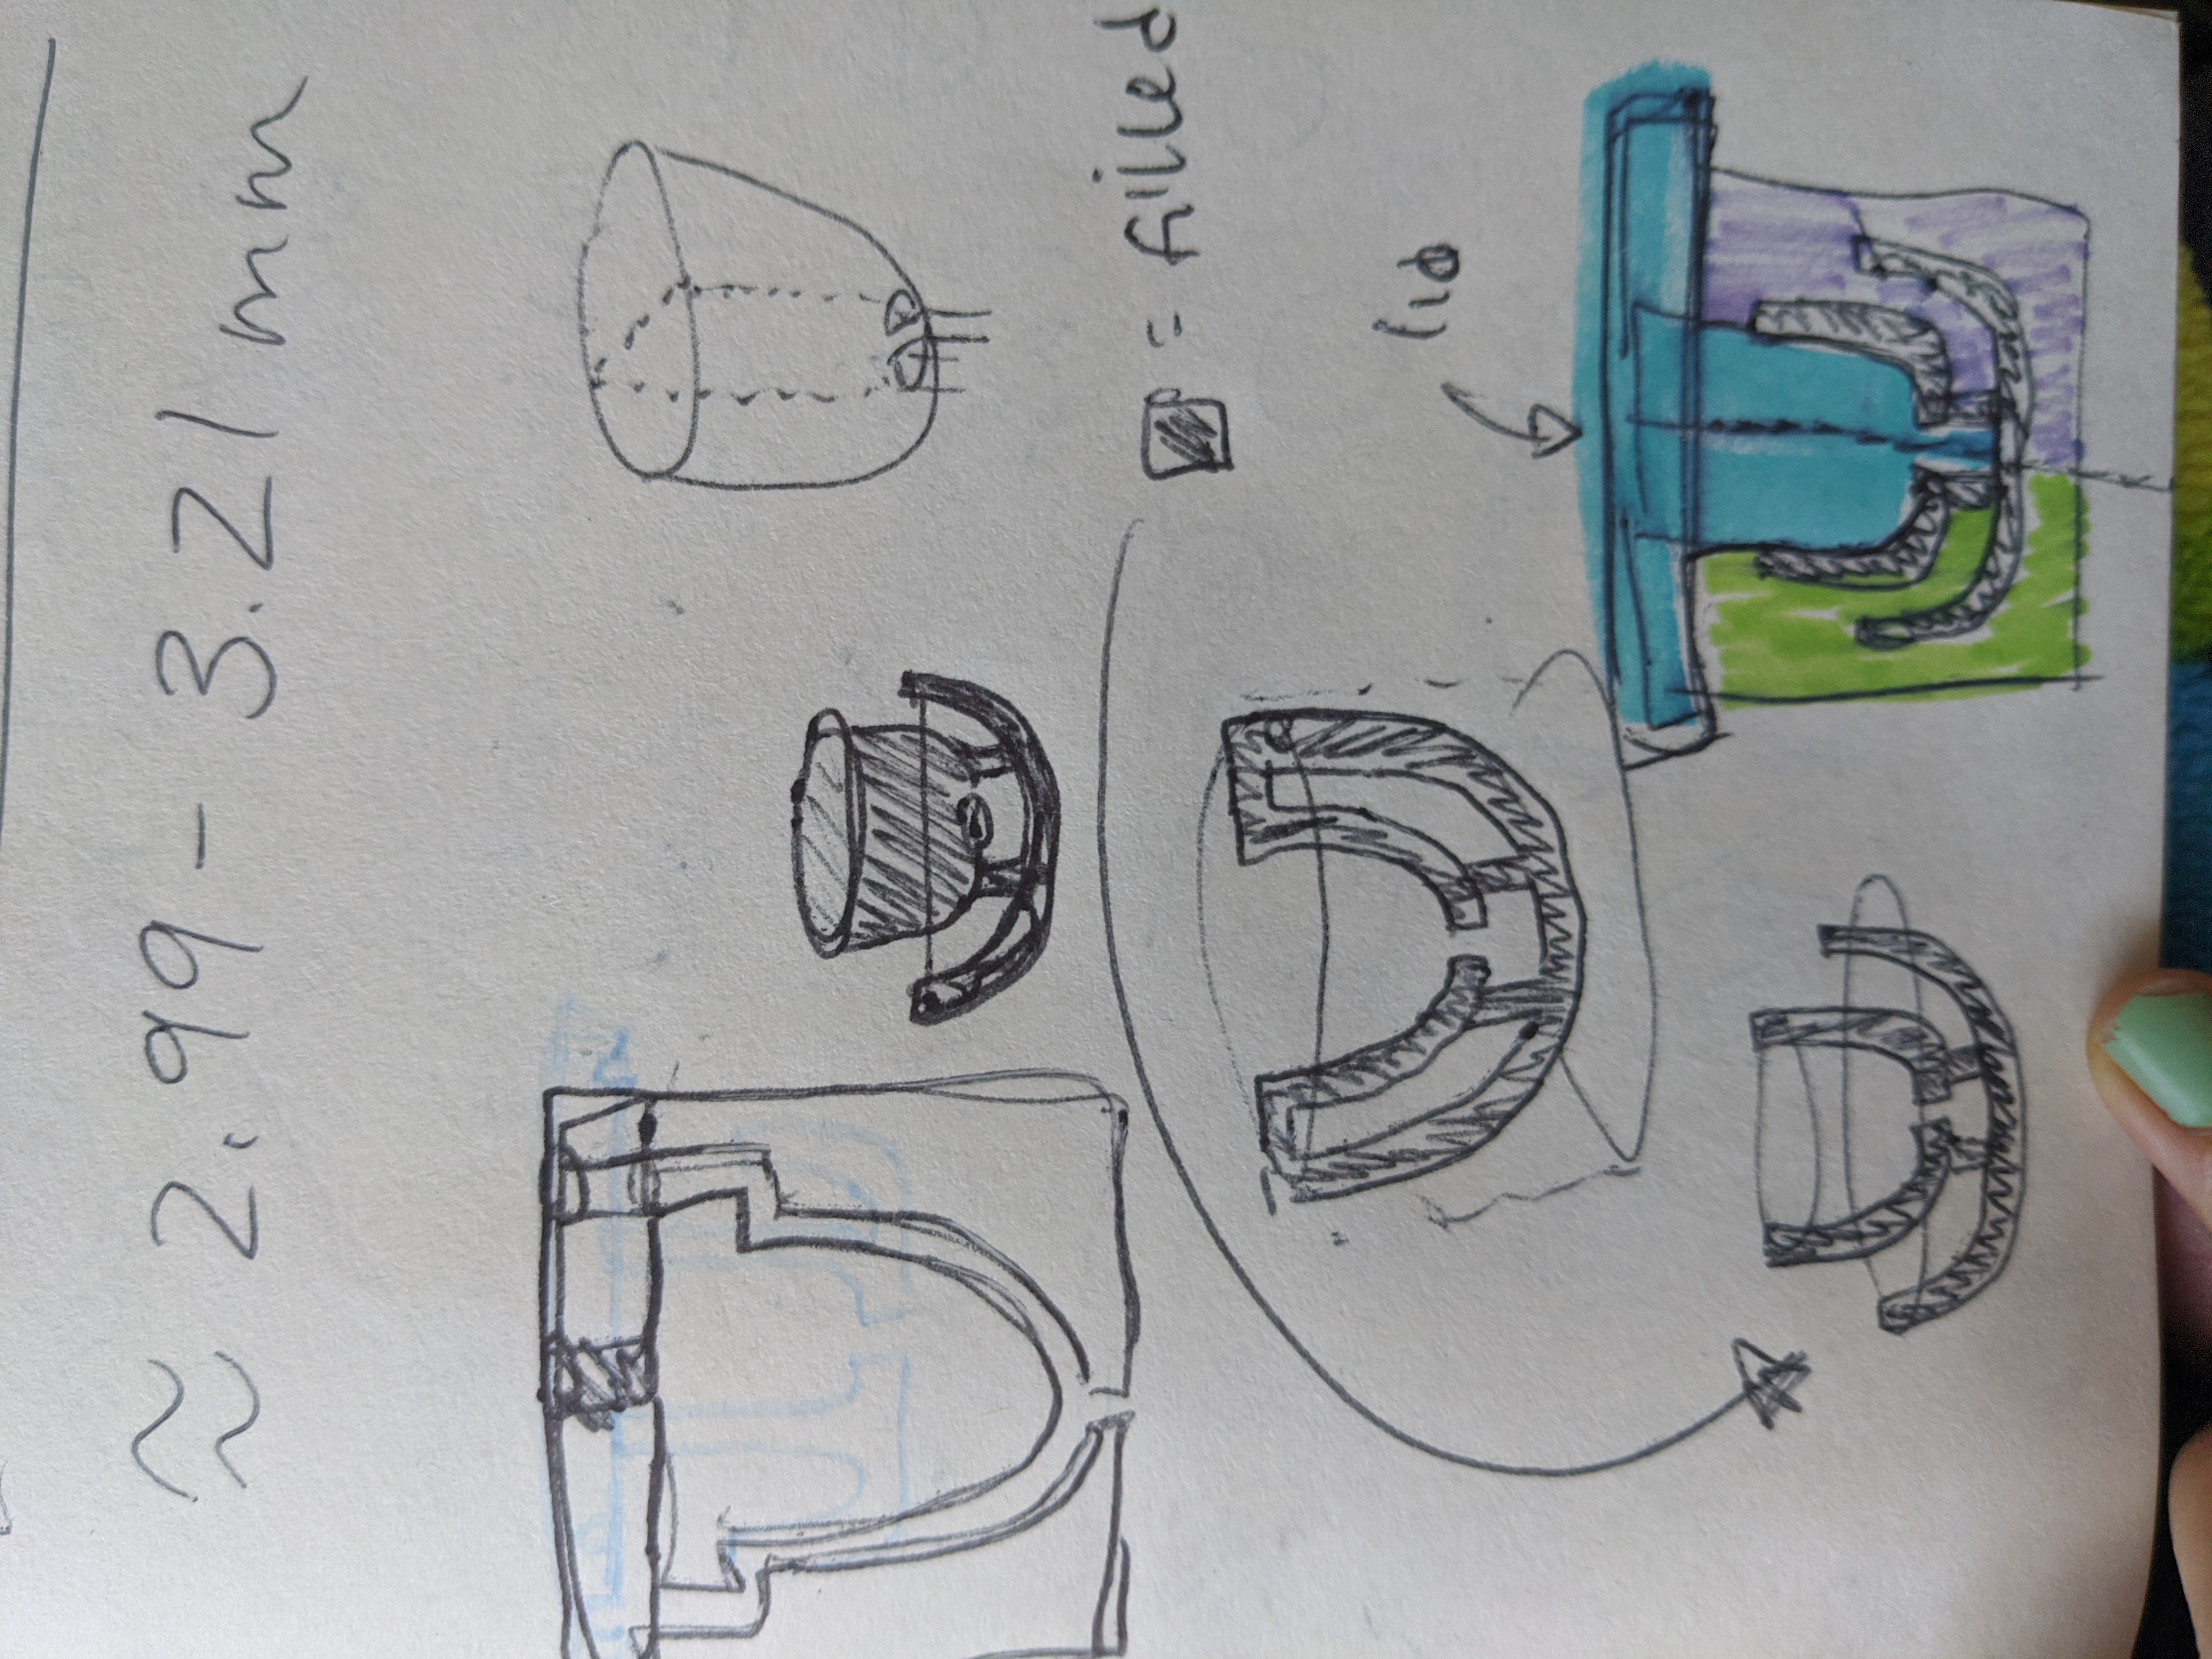 ≈ 2.99 - 3.21 mm
= filled
lid